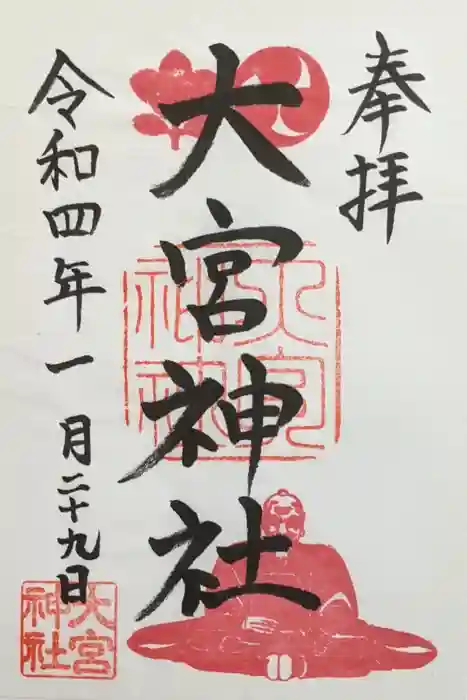 奉拝
大宮神社
令和四年一月二十九日
大宮神社
大宮神社